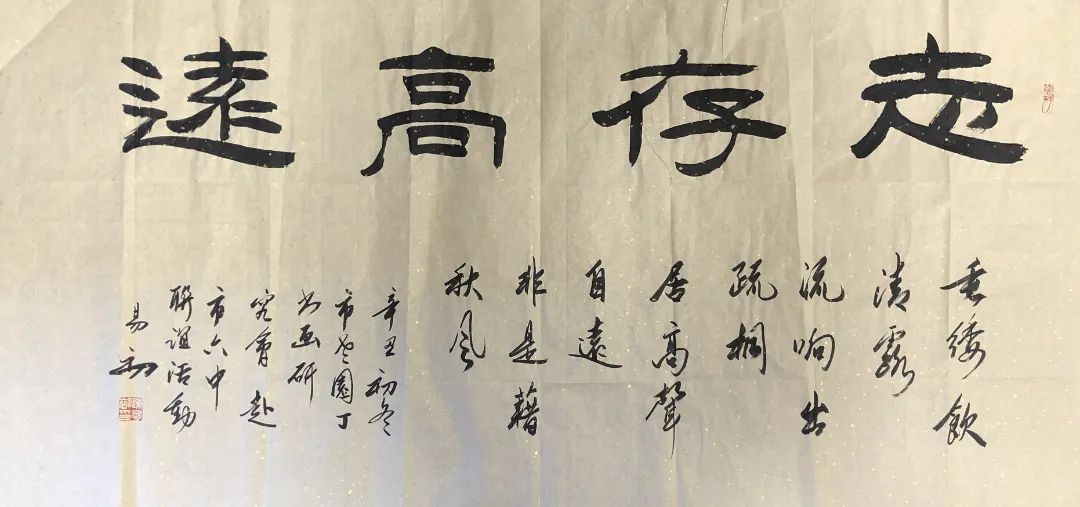 志存高遠
垂緌飲
清露
流响出
疏桐
居高聲
自遠
非是藉
秋風
辛丑初冬
市老園丁
书画研
究會赴
市六中
聯誼活動
易初